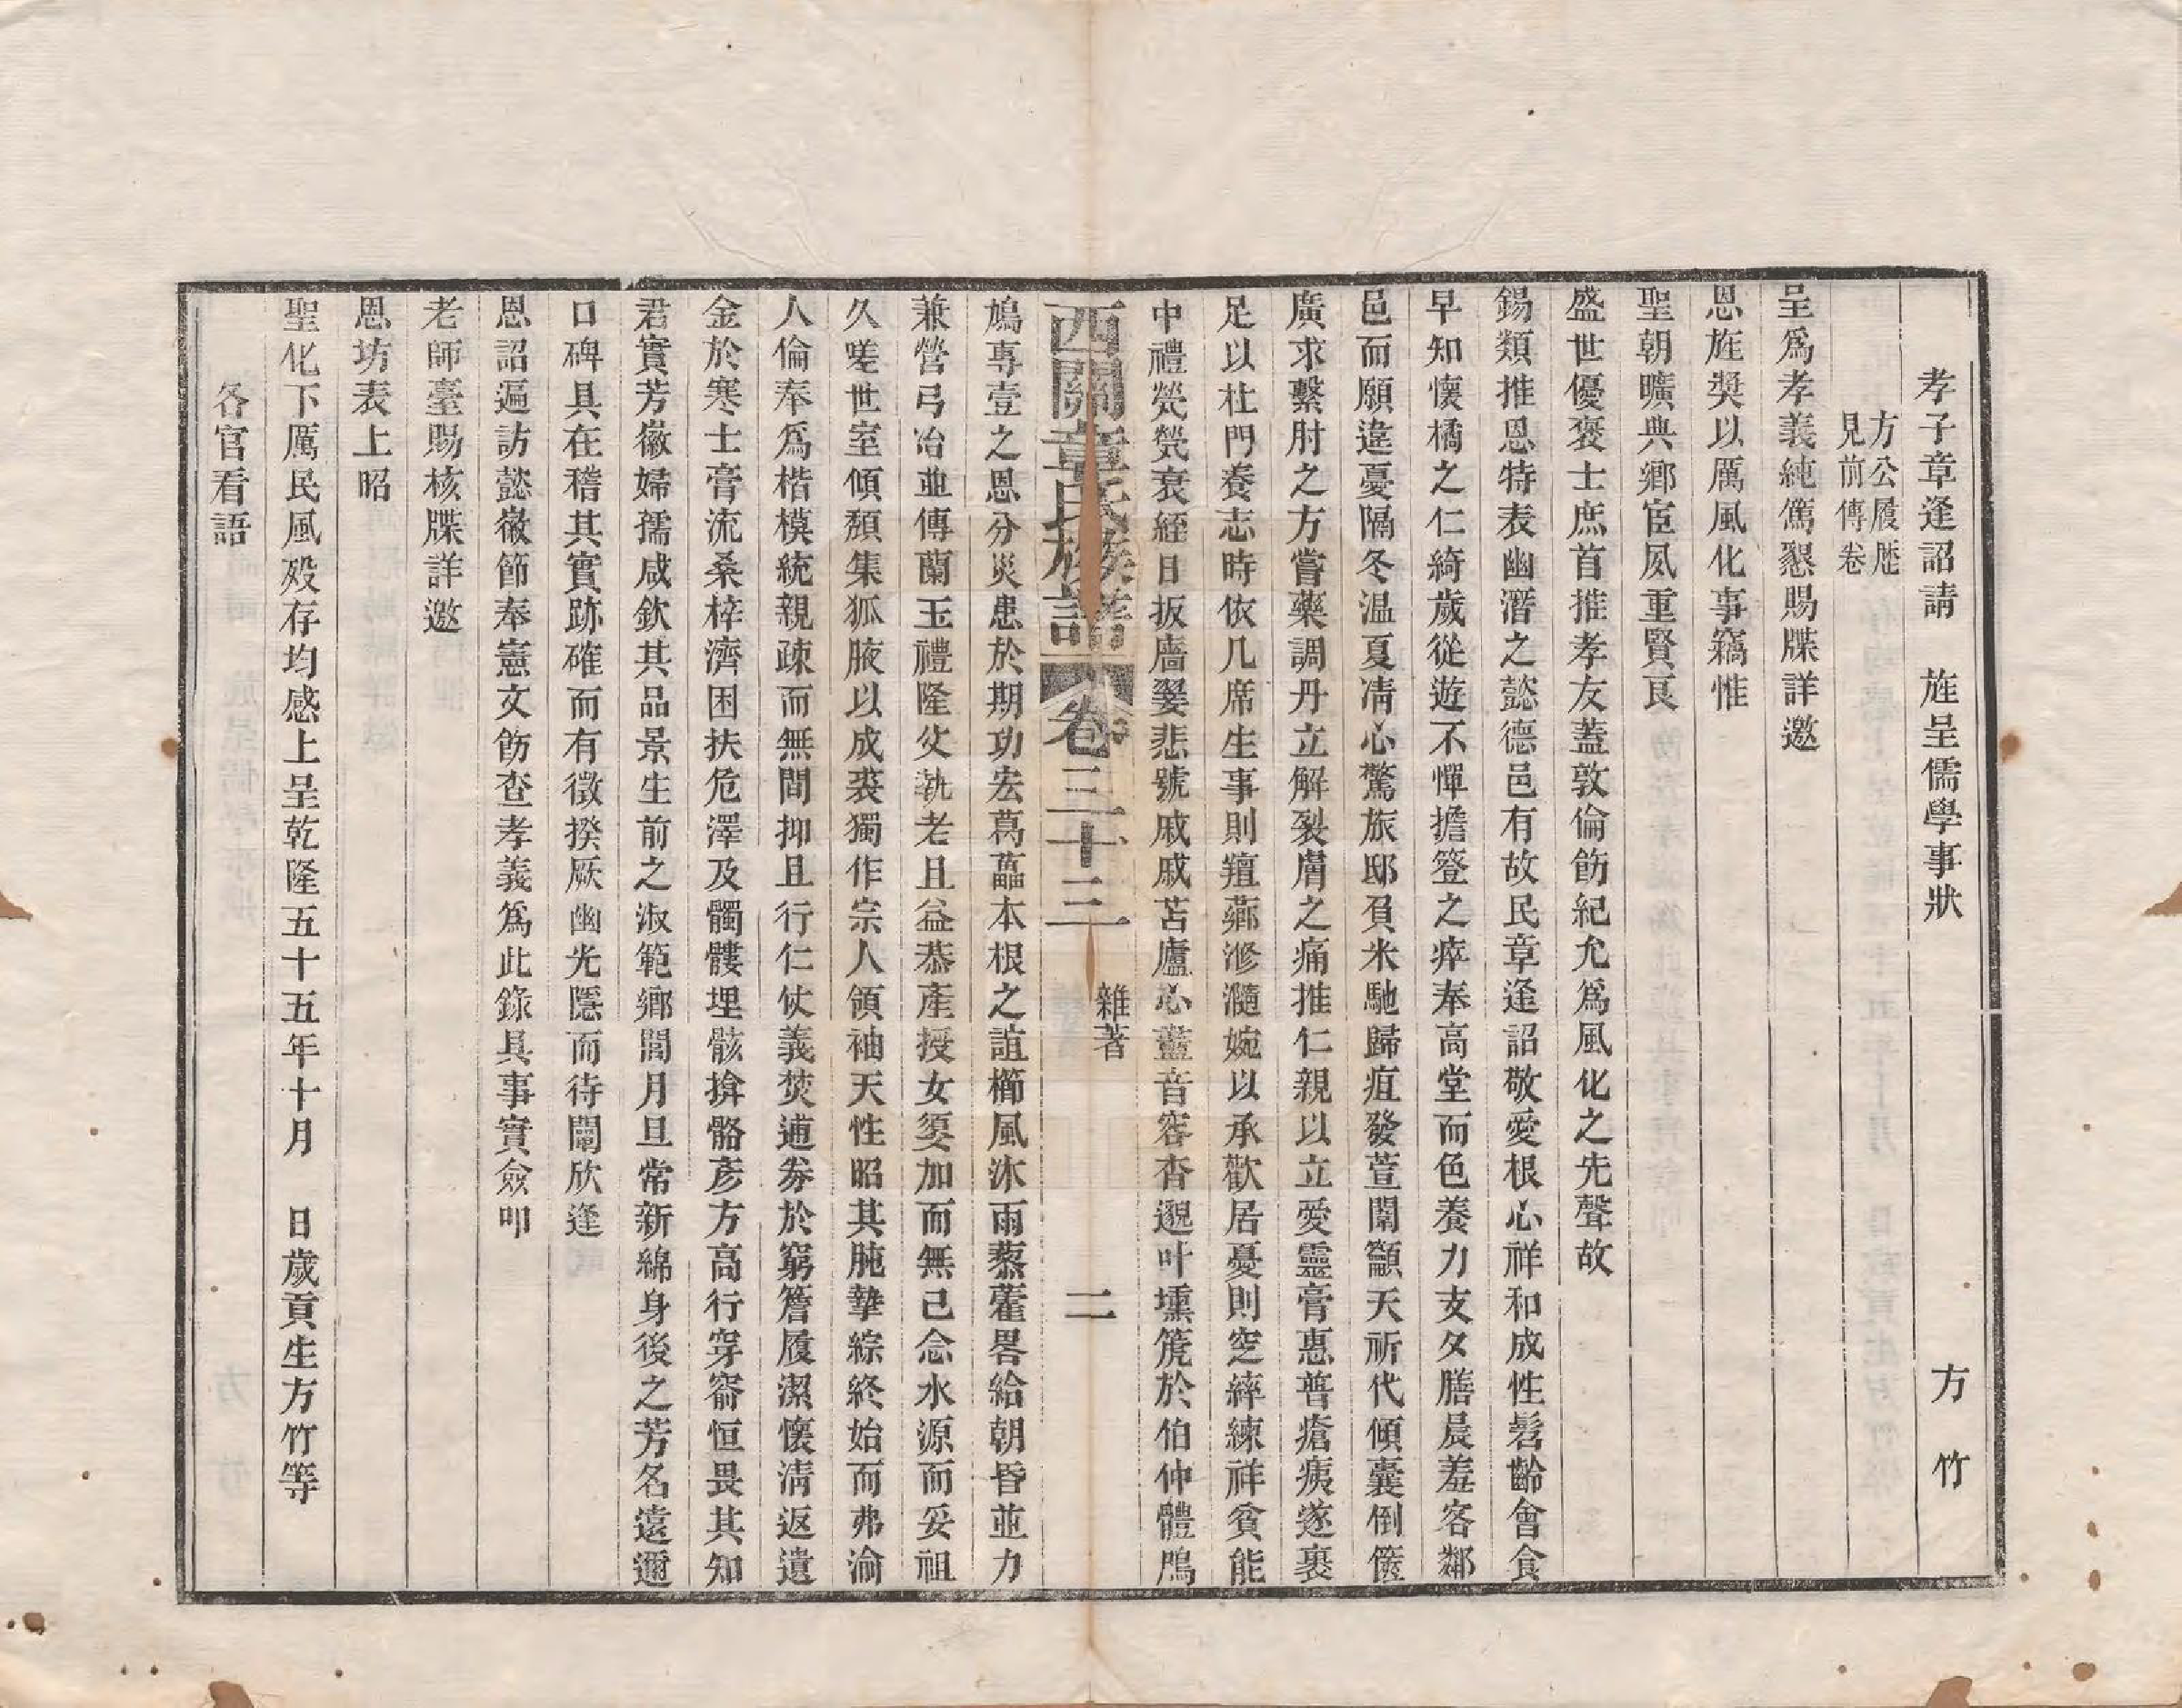 孝子章逢詔請　旌呈儒學事狀　方竹
方公履歷
見前傳卷
呈爲孝義純篤懇賜牒詳邀
恩旌奬以厲風化事竊惟
聖朝曠典鄉宦夙重賢良
盛世優褒士庶首推孝友蓋敦倫飭紀允爲風化之先聲故
錫類推恩特表幽潛之懿德邑有故民章逢詔敬愛根心祥和成性髫齡會食
早知懷橘之仁綺歲從遊不憚擔簦之瘁奉高堂而色養力支夕膳晨羞客鄰
邑而願違憂隔冬温夏凊心驚旅邸負米馳歸疽發萱闈籲天祈代傾囊倒篋
廣求繫肘之方嘗藥調丹立解裂膚之痛推仁親以立愛靈膏惠普瘡痍遂裹
足以杜門養志時依几席生事則羶薌滫瀡婉以承歡居憂則空縡練祥貧能
中禮煢煢衰絰日扳廧翣悲號戚戚苫廬心盡音容杳邈叶壎箎於伯仲體鳲
西關章氏族譜　卷三十三　雜著　二
鳩專壹之恩分災患於期功宏葛藟本根之誼櫛風沐雨藜藿畧給朝昏並力
兼營弓冶並傳蘭玉禮隆父執老且益恭產授女嬃加而無已念水源而妥祖
久嗟世室傾頹集狐腋以成裘獨作宗人領袖天性昭其肫摯綜終始而弗渝
人倫奉爲楷模統親疎而無間抑且行仁仗義焚逋券於窮簷履潔懷清返遺
金於寒士膏流桑梓濟困扶危澤及髑髏埋骸揜骼彥方高行穿窬恒畏其知
君實芳徽婦孺咸欽其品景生前之淑範鄉閭月旦常新綿身後之芳名遠邇
口碑具在稽其實跡確而有徵揆厥幽光隱而待闡欣逢
恩詔遍訪懿徽節奉憲文飭查孝義爲此錄具事實僉叩
老師臺賜核牒詳邀
恩坊表上昭
聖化下厲民風歿存均感上呈乾隆五十五年十月　日歲貢生方竹等
各官看語